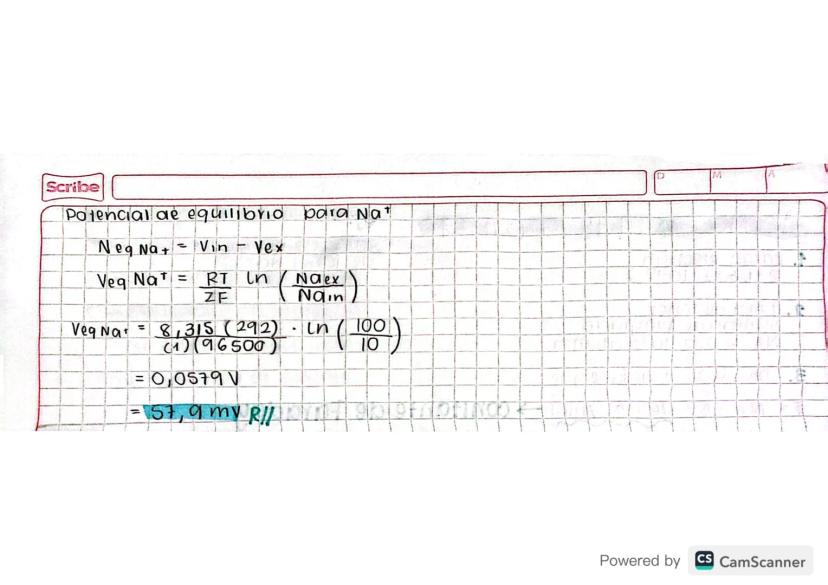 Scribe
D M A
Potencial de equilibrio para Na⁺
Neq Na+ = Vin - Vex
Veq Na⁺ = RT/ZF ln (Naex/Nain)
Veq Na⁺ = 8,315 (292)/(1)(96500) · Ln (100/10)
= 0,0579 V
= 57,9 mV R//
Powered by CS CamScanner